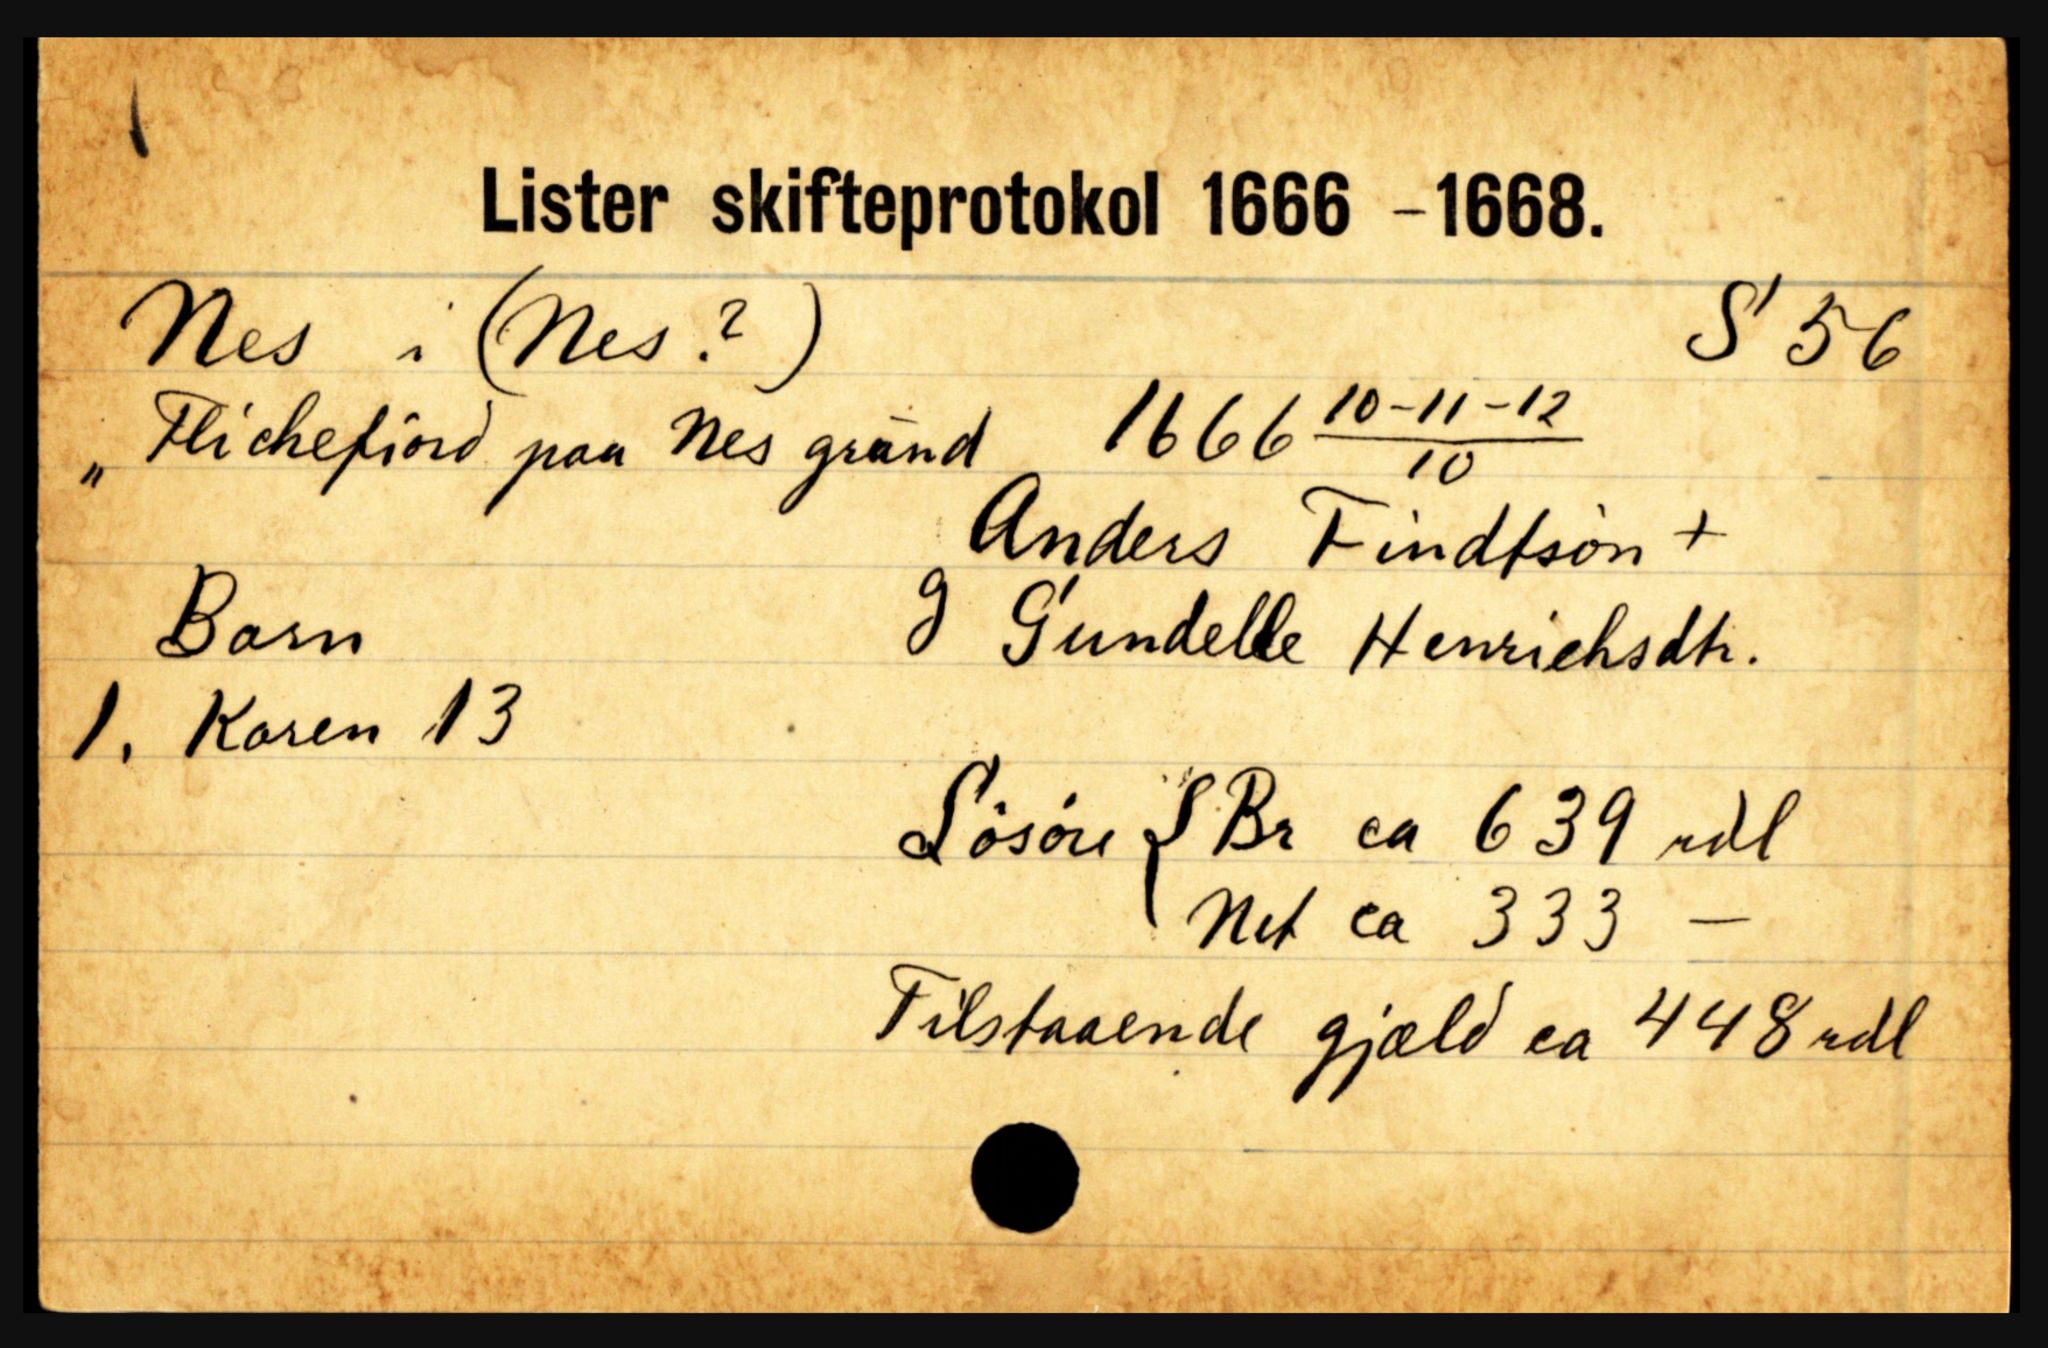 Lister skifteprotokol 1666 - 1668.
Nes i (Nes?) S 56
„ Flichefiord paa Nes grund 1666 10-11-12/10
Anders Findtsön +
Barn g Gundelle Henrichsdtr.
1. Karen 13
Lösöre { Br ca 639 rdl
Net ca 333 —
Tilstaaende gjæld ca 448 rdl